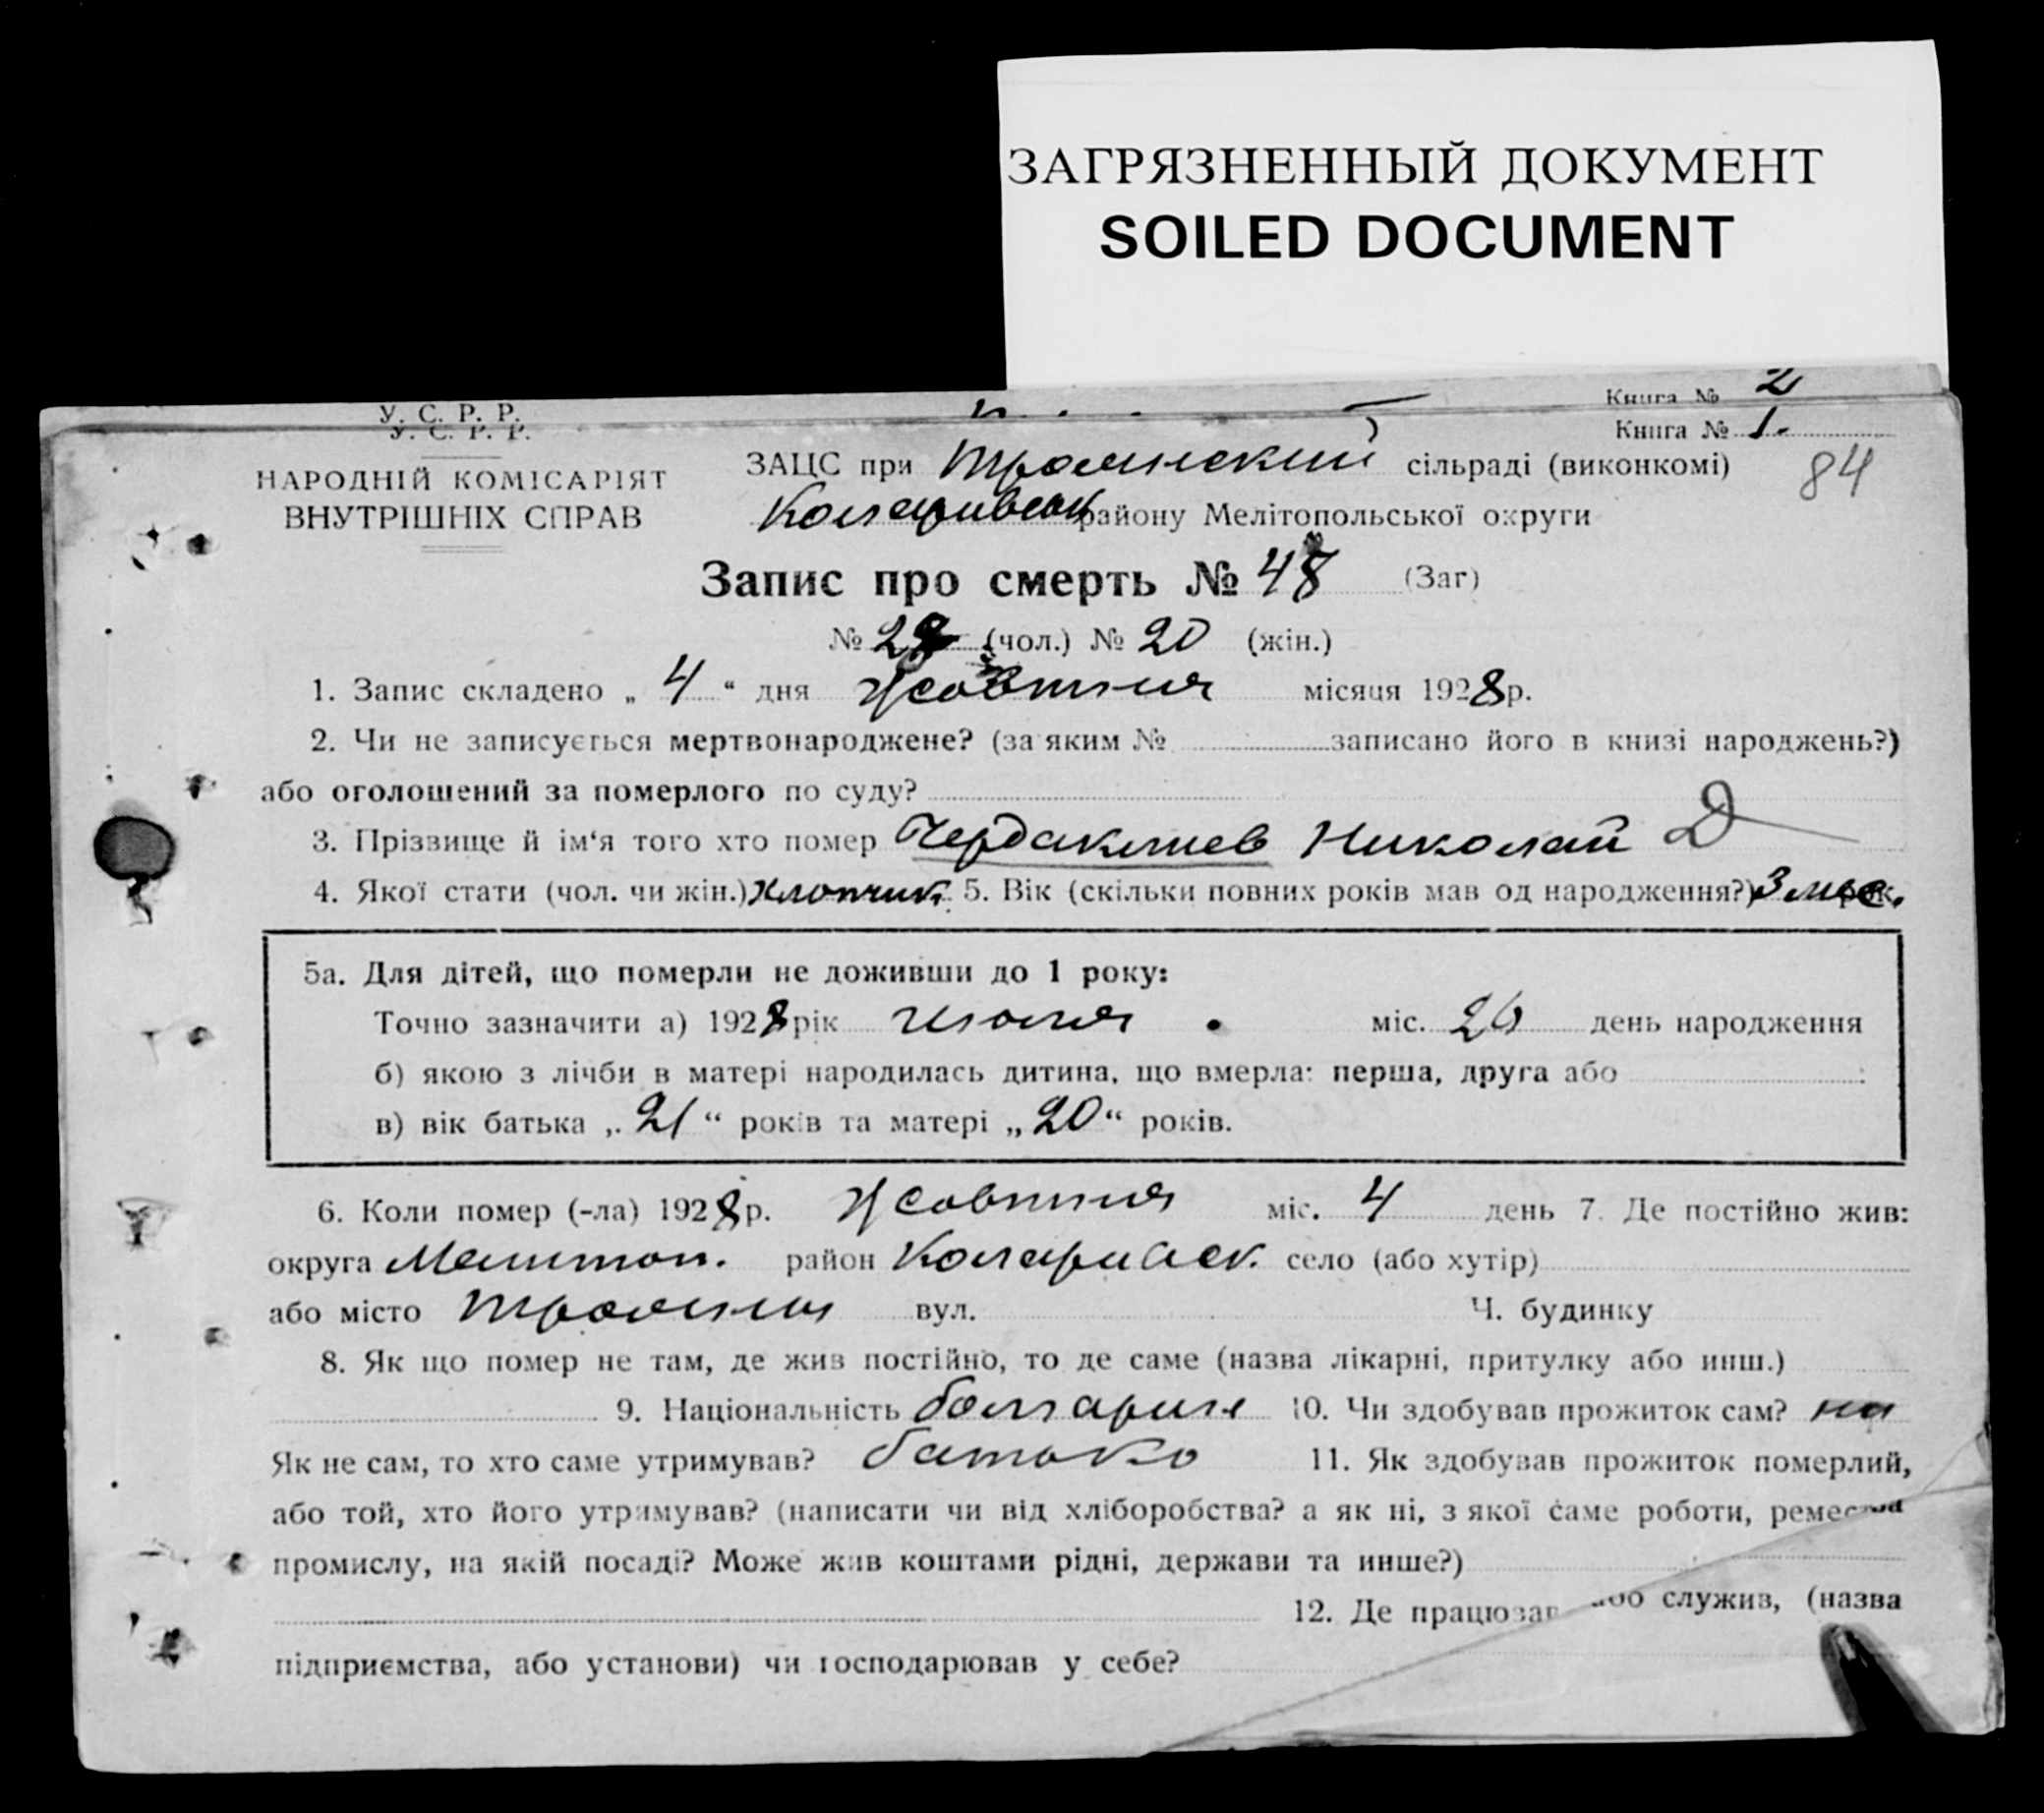 ЗАГРЯЗНЕННЫЙ ДОКУМЕНТ
SOILED DOCUMENT
Книга № 2
У. С. Р. Р.
У. С. Р. Р.
Книга № 1.
84
НАРОДНІЙ КОМІСАРІЯТ
ВНУТРІШНІХ СПРАВ
ЗАЦС при Троянский сільраді (виконкомі)
Коларивськ району Мелітопольської округи
Запис про смерть № 48 (Заг)
№ 28 (чол.) № 20 (жін.)
1. Запис складено „ 4 “ дня Жовтня місяця 1928 р.
2. Чи не записується мертвонароджене? (за яким № записано його в книзі народжень?)
або оголошений за померлого по суду?
3. Прізвище й ім‘я того хто помер Чердаклиев Николай Д
4. Якої стати (чол. чи жін.) Хлопчик. 5. Вік (скільки повних років мав од народження?) 3 мис. рок.
5а. Для дітей, що померли не доживши до 1 року:
Точно зазначити а) 1928 рік Июля міс. 26 день народження
б) якою з лічби в матері народилась дитина, що вмерла: перша, друга або
в) вік батька „ 21 “ років та матері „ 20 “ років.
6. Коли помер (-ла) 1928 р. Жовтня міс. 4 день 7. Де постійно жив:
округа Мелитоп. район Коларивск. село (або хутір)
або місто Трояни вул. Ч. будинку
8. Як що помер не там, де жив постійно, то де саме (назва лікарні, притулку або инш.)
9. Національність болгарин 10. Чи здобував прожиток сам?
Як не сам, то хто саме утримував? батько 11. Як здобував прожиток померлий,
або той, хто його утримував? (написати чи від хліборобства? а як ні, з якої саме роботи, ремесла
промислу, на якій посаді? Може жив коштами рідні, держави та инше?)
12. Де працював або служив, (назва
підприємства, або установи) чи господарював у себе?